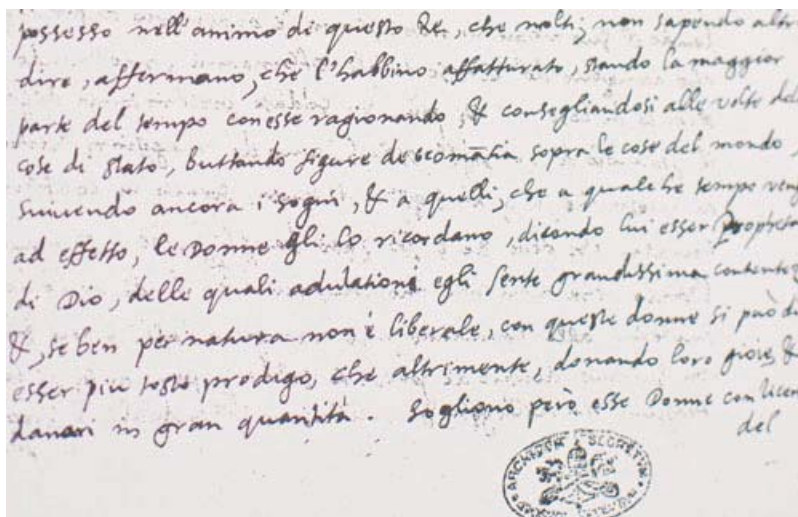 possesso nell'animo di questo Re, che molti, non sapendo altro
dire, affermano, che l'habbino affatturato, stando la maggior
parte del tempo con esse ragionando, & consegliandosi alle volte del
cose di stato, buttando figure de geomãtia sopra le cose del mondo,
scrivendo ancora i sogni, & a quelli, che a qualche tempo veng
ad effetto, le Donne gli lo ricordano, dicendo lui esser Propheta
di Dio, delle quali adulationi egli sente grandissima contentez
&, se ben per natura non è liberale, con queste donne si può di
esser più tosto prodigo, che altrimente, donando loro gioie, &
danari in gran quantità. Sogliono però esse Donne con licen
del
ARCHIVUM SECRETUM